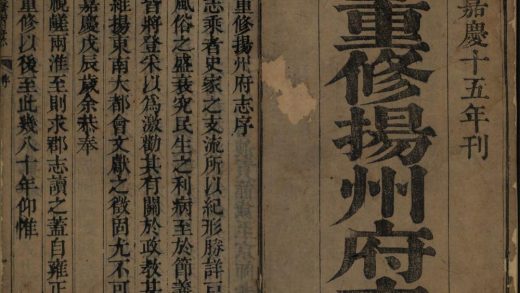 嘉慶十五年刊
重修揚州府
重修揚州府志序
志乘者史家之支流所以紀形勝詳
風俗之盛衰究民生之利病至於節義
皆將登采以為激勸其有關於政教
維揚東南大都會文獻之徵固尤不可
嘉慶戊辰歲余恭奉
視鹺兩淮至則求郡志讀之蓋自雍正
重修以後至此幾八十年仰惟